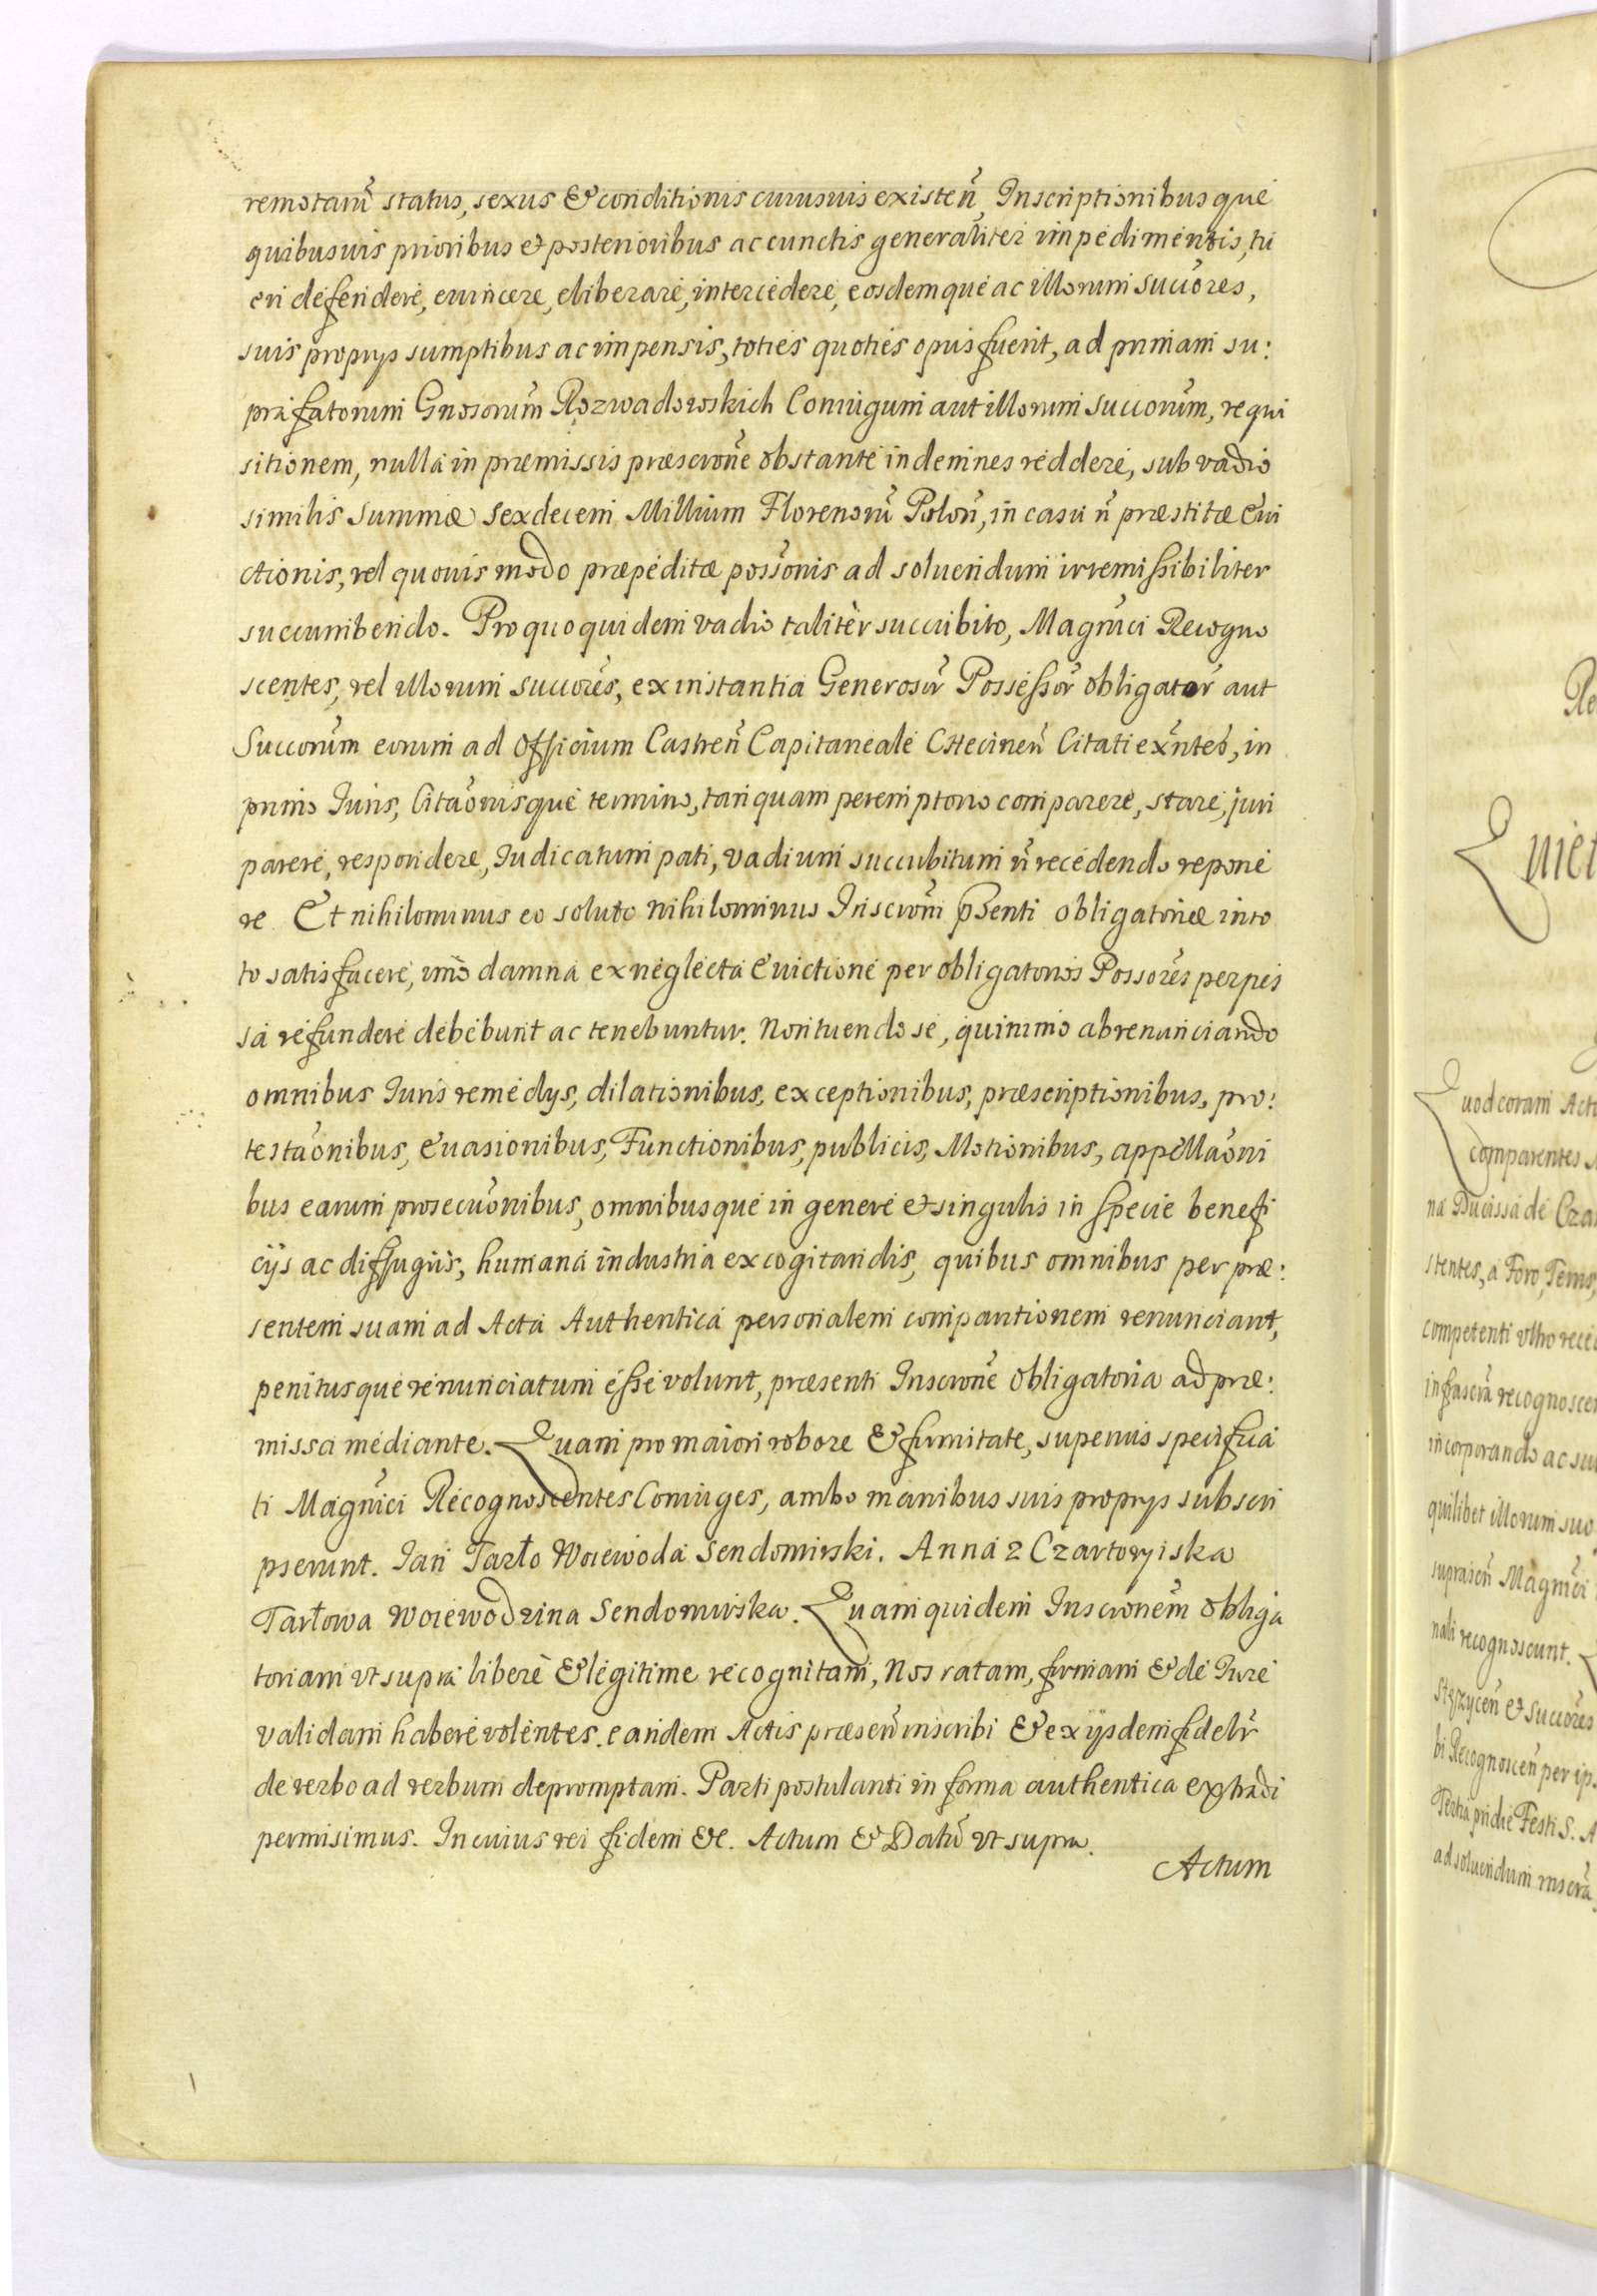 remotarũ status, sexus & conditionis cuiusuis existeñ, Inscriptionibusque
quibusuis prioribus et posterioribus ac cunctis generaliter impedimentis, tu
eri defendere, euincere, eliberare, intercedere, eosdemque ac illorum Succores,
suis proprys sumptibus ac impensis, toties quoties opus fuerit, ad primam su:
prafatorum Gnosorum̃ Rozwadowskich Coniugum aut illorum Succorum̃, requi
sitionem, nulla in præmissis præscrone̾ obstante indemnes reddere, sub vadio
similis Summæ Sexdecem Millium Florenorũ Poloñ, in casu ñ præstitæ Eui
ctionis, vel quouis modo præpeditæ possonis ad soluendum irremissibiliter
succumbendo. Pro quo quidem vadio taliter succubito, Magnici Recogno
scentes, vel illorum Succores, ex instantia Generosor̃ Possessor̃ obligator̃ aut
Succorum̃ eorum ad Officium Castreñ Capitaneale Chencineñ Citati exñtes, in
primo Iuris, Citaõnisque termino, tanquam peremptorio comparere, stare, juri
parere, respondere, Iudicatum pati, vadium succubitum ñ recedendo repone
re Et nihilominus eo soluto nihilominus Inscrom̃ p̃senti obligatoriæ in to
to satisfacere, imo damna ex neglecta Euictione per obligatorios Possores perpes
sa refundere debebunt ac tenebuntur. Non tuendo se, quinimo abrenunciando
omnibus Iuris remedys, dilationibus, exceptionibus, præscriptionibus, pro:
testaõnibus, Euasionibus, Functionibus, publicis, Motionibus, appellaõni
bus earum prosecuõnibus, omnibusque in genere et singulis in specie benefi
cijs ac diffugijs, humana industria excogitandis, quibus omnibus per præ:
sentem suam ad Acta Authentica personalem comparitionem renunciant,
penitusque renunciatum esse volunt, præsenti Inscrone̾ Obligatoria ad præ:
missa mediante. Quam pro maiori robore & firmitate, superius specifica
ti Magnici Recognoscentes Coniuges, ambo manibus suis proprys subscri
pserunt. Jan Tarło Woiewoda Sendomirski. Anna z Czartoryiska
Tarłowa Woiewodzina Sendomirska. Quam quidem Inscronem̃ Obliga
toriam vt supra libere & legitime recognitam, Nos ratam, firmam & de Iure
validam habere volentes. eandem Actis præseñ inscribi & ex ijsdem fidelr̃
de verbo ad verbum depromptam. Parti postulanti in forma authentica extradi
permisimus. In cuius rei fidem &c. Actum & Datũ vt supra.
Actum